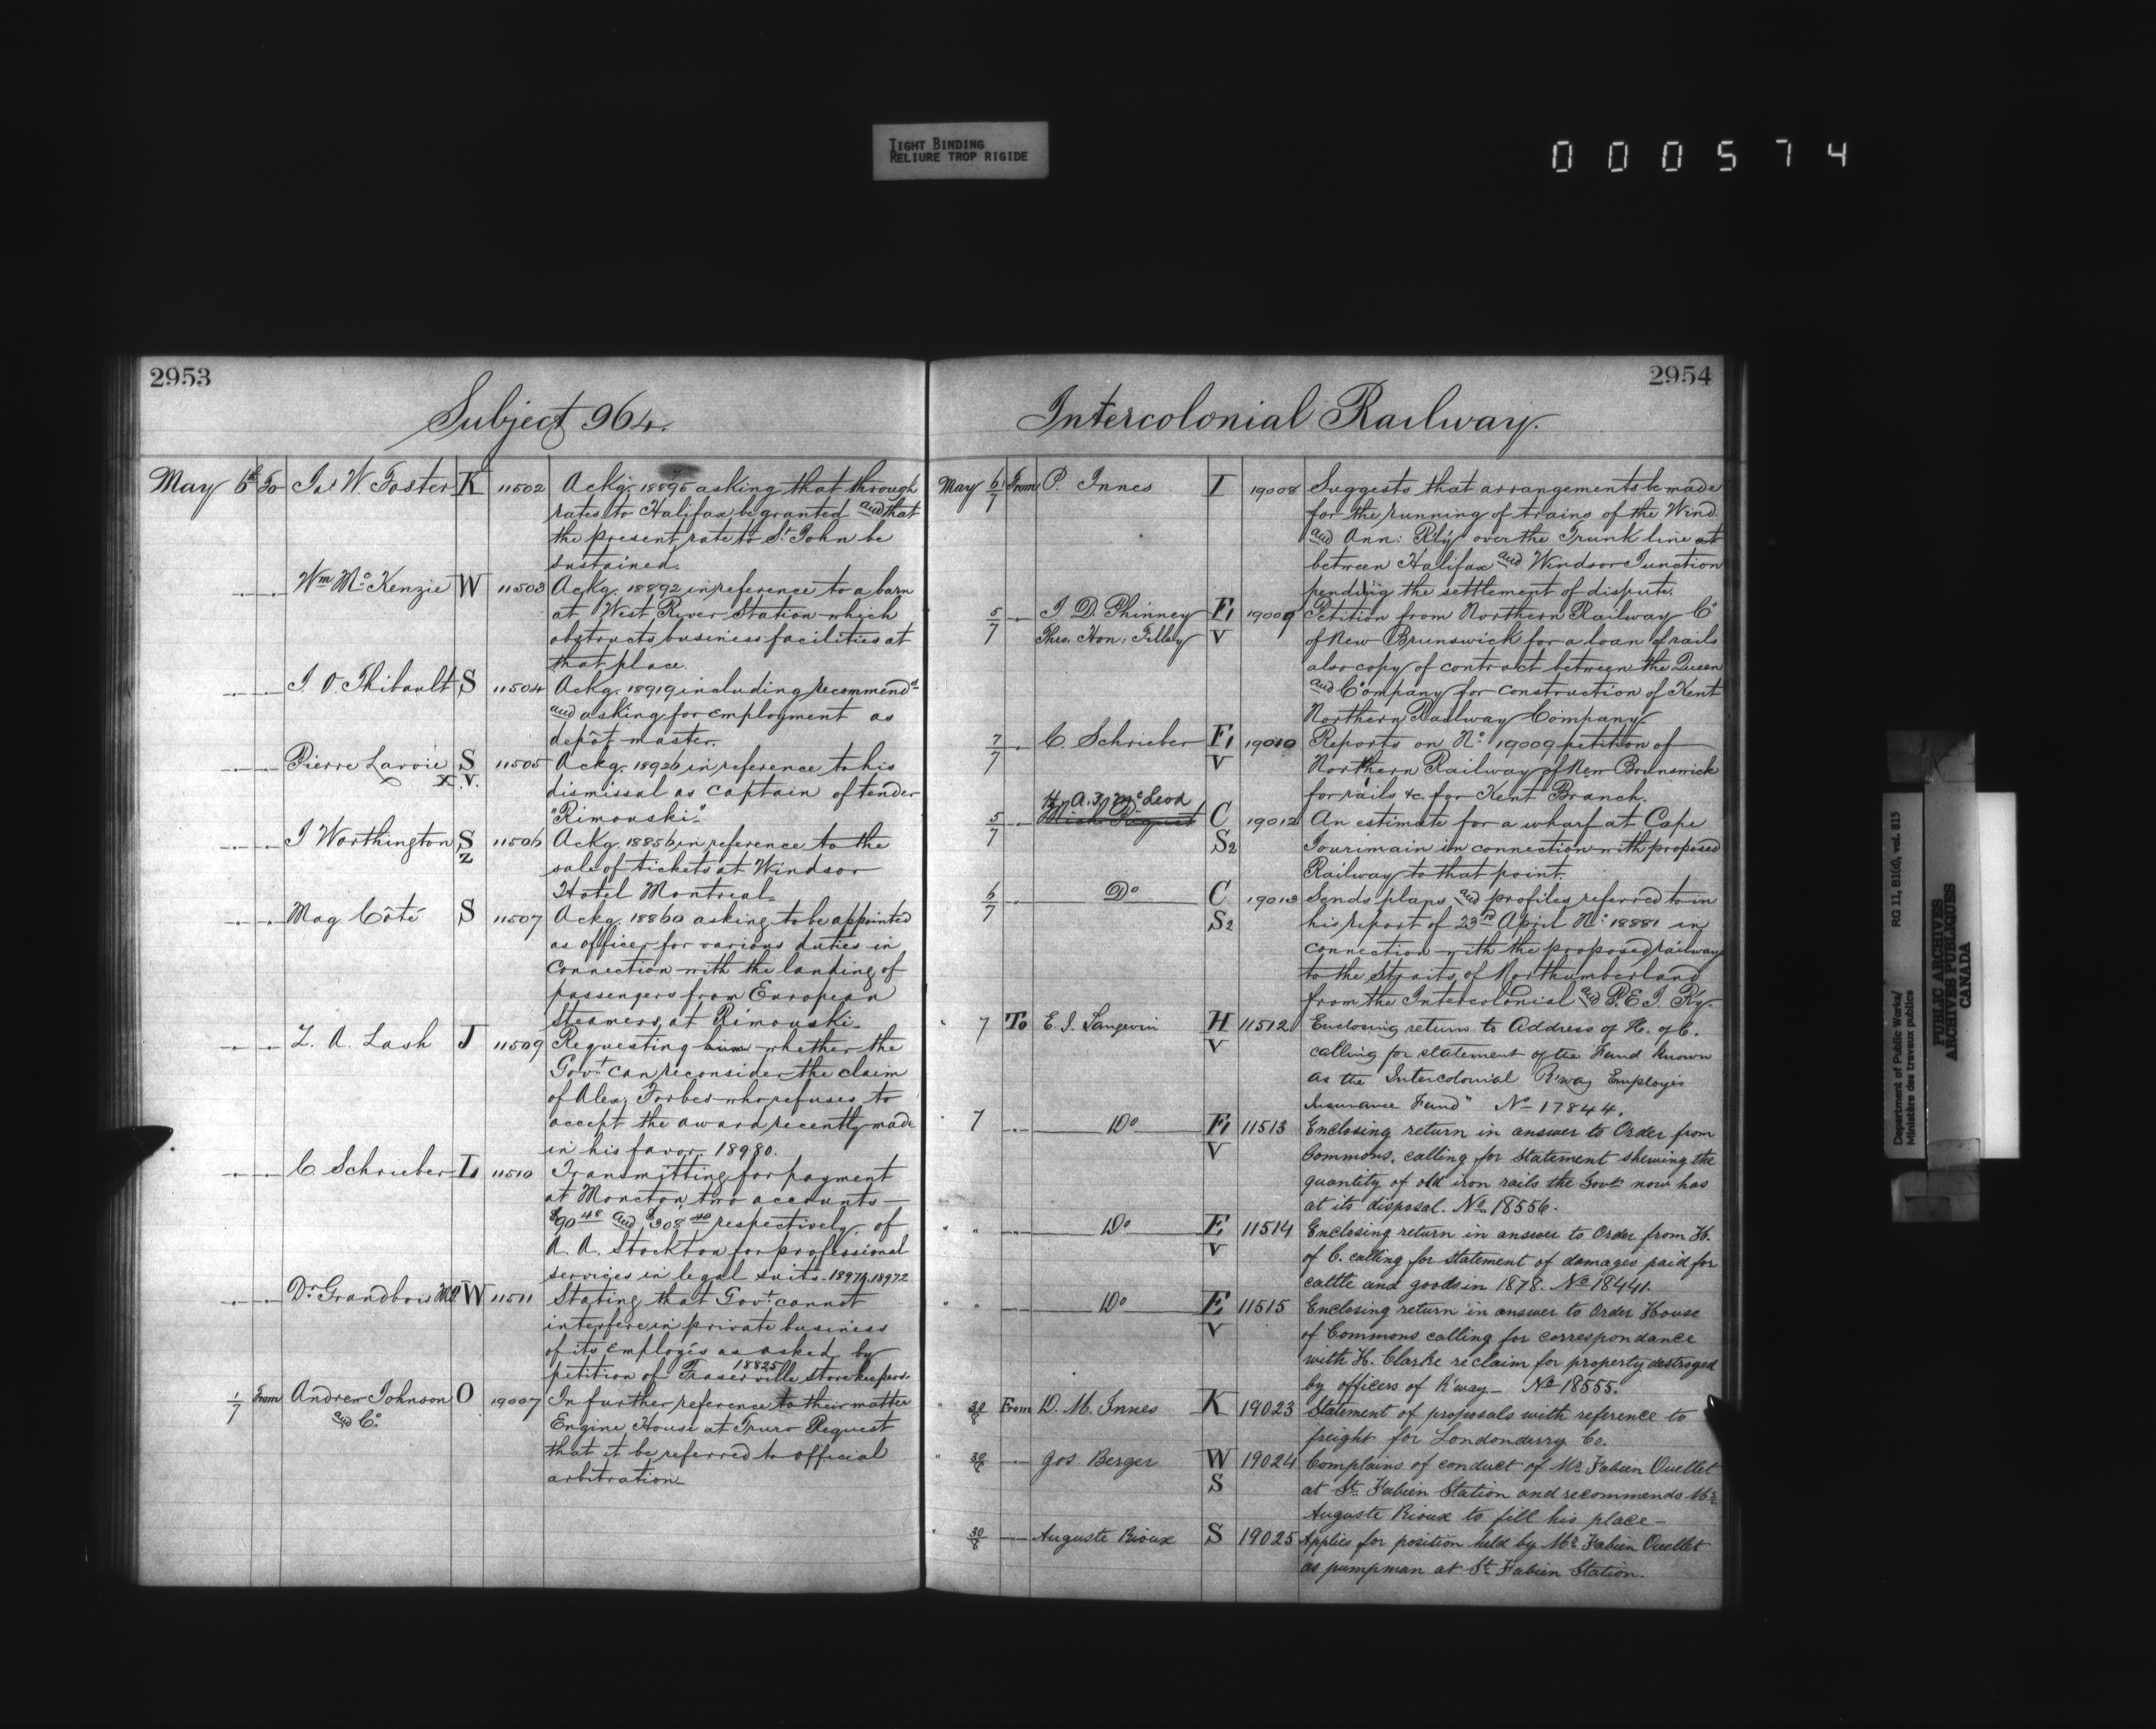 TIGHT BINDING
RELIURE TROP RIGIDE
000574
2953
Subject 964.
May 6th To Jas W. Foster K 11502 Ackg. 18895 asking that through
rates to Halifax be granted and that
the present rate to St John be
sustained.
Wm McKenzie W 11503 Ackg. 18892 in reference to a barn
at West River Station which
obstructs business facilities at
that place.
J. O Thibault S 11504 Ackg. 18919 including recommendn
and asking for employment as
depôt master.
Pierre Lavoie S 11505 Ackg. 18920 in reference to his
X V. dismissal as captain of tender
"Rimouski".
J Worthington S 11506 Ackg. 18856 in reference to the
Z sale of tickets at Windsor
Hotel Montreal.
Mag. Côté S 11507 Ackg. 18860 asking to be appointed
as officer for various duties in
connection with the landing of
passengers from European
Steamers at Rimouski.
Z. A. Lash J 11509 Requesting him whether the
Govt can reconsider the claim
of Alex. Forbes who refuses to
accept the award recently made
in his favor. 18980.
C Schrieber L 11510 Transmitting for payment
at Moncton two accounts
$90 48 and $308 40 respectively of
A. A. Stockton for professional
services in legal suits. 18971.18972
Dr Grandbois M.P. W 11511 Stating that Govt cannot
interfere in private business
of its employés as asked by
18825
petition of Fraserville storekeepers.
1/7 From Andrew Johnson O 19007 In further reference to their matter
and Co Engine House at Truro Request
that it be referred to official
arbitration
2954
Intercolonial Railway.
May 6/7 From P. Innes I 19008 Suggests that arrangements be made
for the running of trains of the Wind.
and Ann: Rly over the Trunk line at
between Halifax and Windsor Junction
pending the settlement of dispute.
5/7 J. D. Phinney F1 19009 Petition from Northern Railway Co
Thro. Hon: Tilley V of New Brunswick for a loan of rails
also copy of contract between the Queen
and Company for construction of Kent
Northern Railway Company
7/7 C. Schrieber F1 19010 Reports on No 19009 petition of
V Northern Railway of New Brunswick
for rails &c. for Kent Branch.
H. A. F. McLeod
5/7 C 19012 An estimate for a wharf at Cape
S2 Jourimain in connection with proposed
Railway to that point.
6/7 Do C 19013 Sends plans and profiles referred to in
S2 his report of 23rd April No: 18881 in
connection with the proposed railway
to the Straits of Northumberland
from the Intercolonial and P.E.I. Ry.
7 To E. J. Langevin H 11512 Enclosing return to Address of H. of C.
V calling for statement of the Fund known
as the Intercolonial R'way Employés
Insurance Fund" No 17844.
7 Do F1 11513 Enclosing return in answer to Order from
V Commons, calling for Statement shewing the
quantity of old iron rails the Govt now has
at its disposal. No 18556.
" Do E 11514 Enclosing return in answer to Order from H.
V of C. calling for statement of damages paid for
cattle and goods in 1878. No 18441.
" " Do E 11515 Enclosing return in answer to Order House
V of Commons calling for correspondance
with H. Clarke re claim for property destroyed
by officers of R'way - No 18555.
" 30/8 From D. M. Innes K 19023 Statement of proposals with reference to
freight for Londonderry Co.
" 30/6 Jos. Berger W 19024 Complains of conduct of Mr Fabien Ouellet
S at St Fabien Station and recommends Mr
Auguste Rioux to fill his place -
" 30/8 Auguste Rioux S 19025 Applies for position held by Mr Fabien Ouellet
as pumpman at St Fabien Station.
Department of Public Works/ RG 11, B1(d), vol. 815
Ministère des travaux publics
PUBLIC ARCHIVES
ARCHIVES PUBLIQUES
CANADA